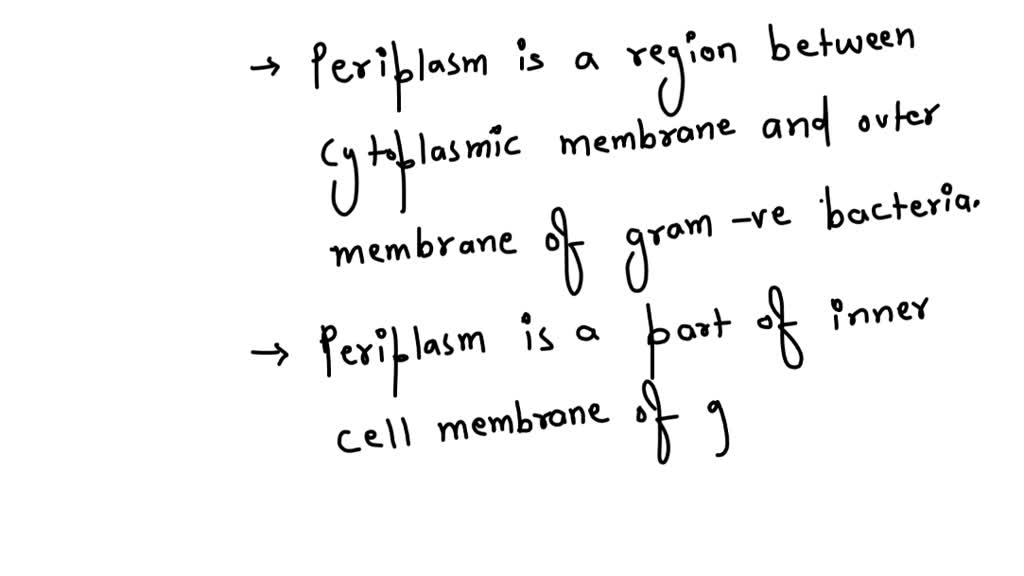 → Periplasm is a region between
cytoplasmic membrane and outer
membrane of gram -ve bacteria.
→ Periplasm is a part of inner
cell membrane of g